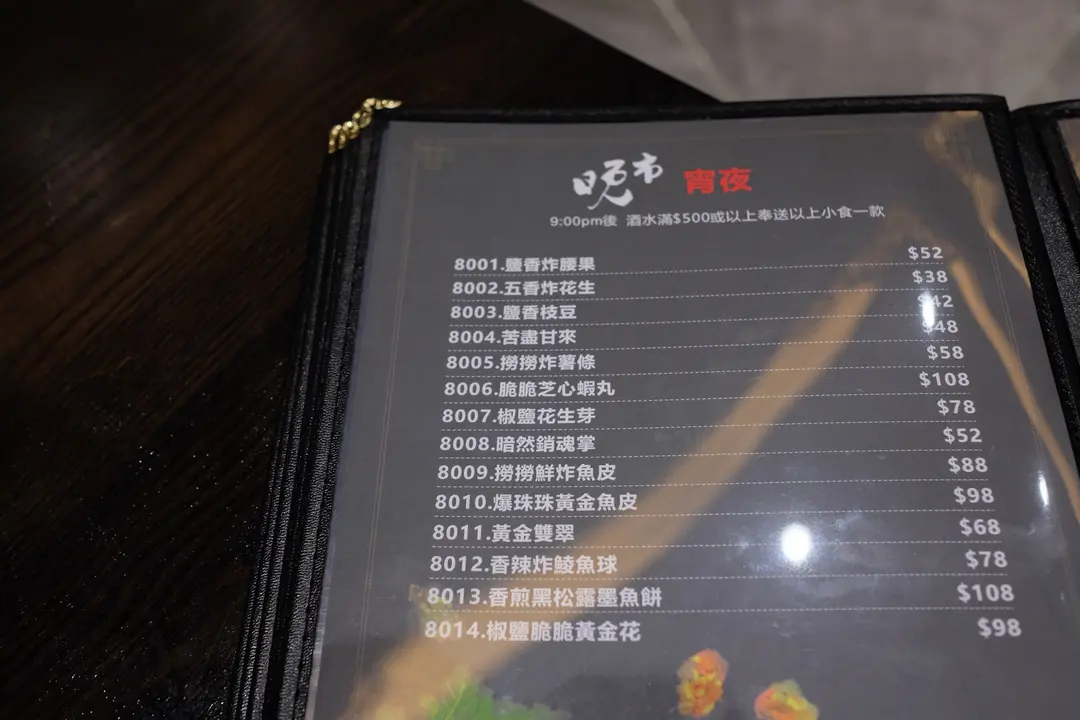 晚市 宵夜
9:00pm後 酒水滿$500或以上奉送以上小食一款
8001.鹽香炸腰果 $52
8002.五香炸花生 $38
8003.鹽香枝豆 $42
8004.苦盡甘來 $48
8005.撈撈炸薯條 $58
8006.脆脆芝心蝦丸 $108
8007.椒鹽花生芽 $78
8008.暗然銷魂掌 $52
8009.撈撈鮮炸魚皮 $88
8010.爆珠珠黃金魚皮 $98
8011.黃金雙翠 $68
8012.香辣炸鯪魚球 $78
8013.香煎黑松露墨魚餅 $108
8014.椒鹽脆脆黃金花 $98